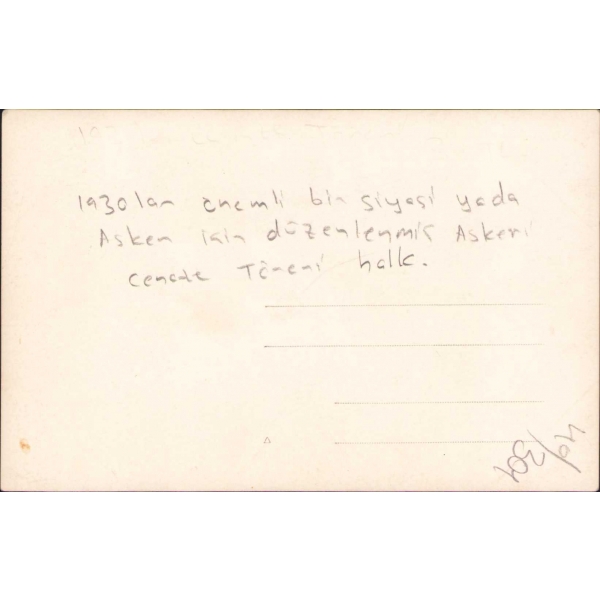 1930lar önemli bir siyasi yada
Asker için düzenlenmiş Askeri
cenaze Töreni halk.
49/304